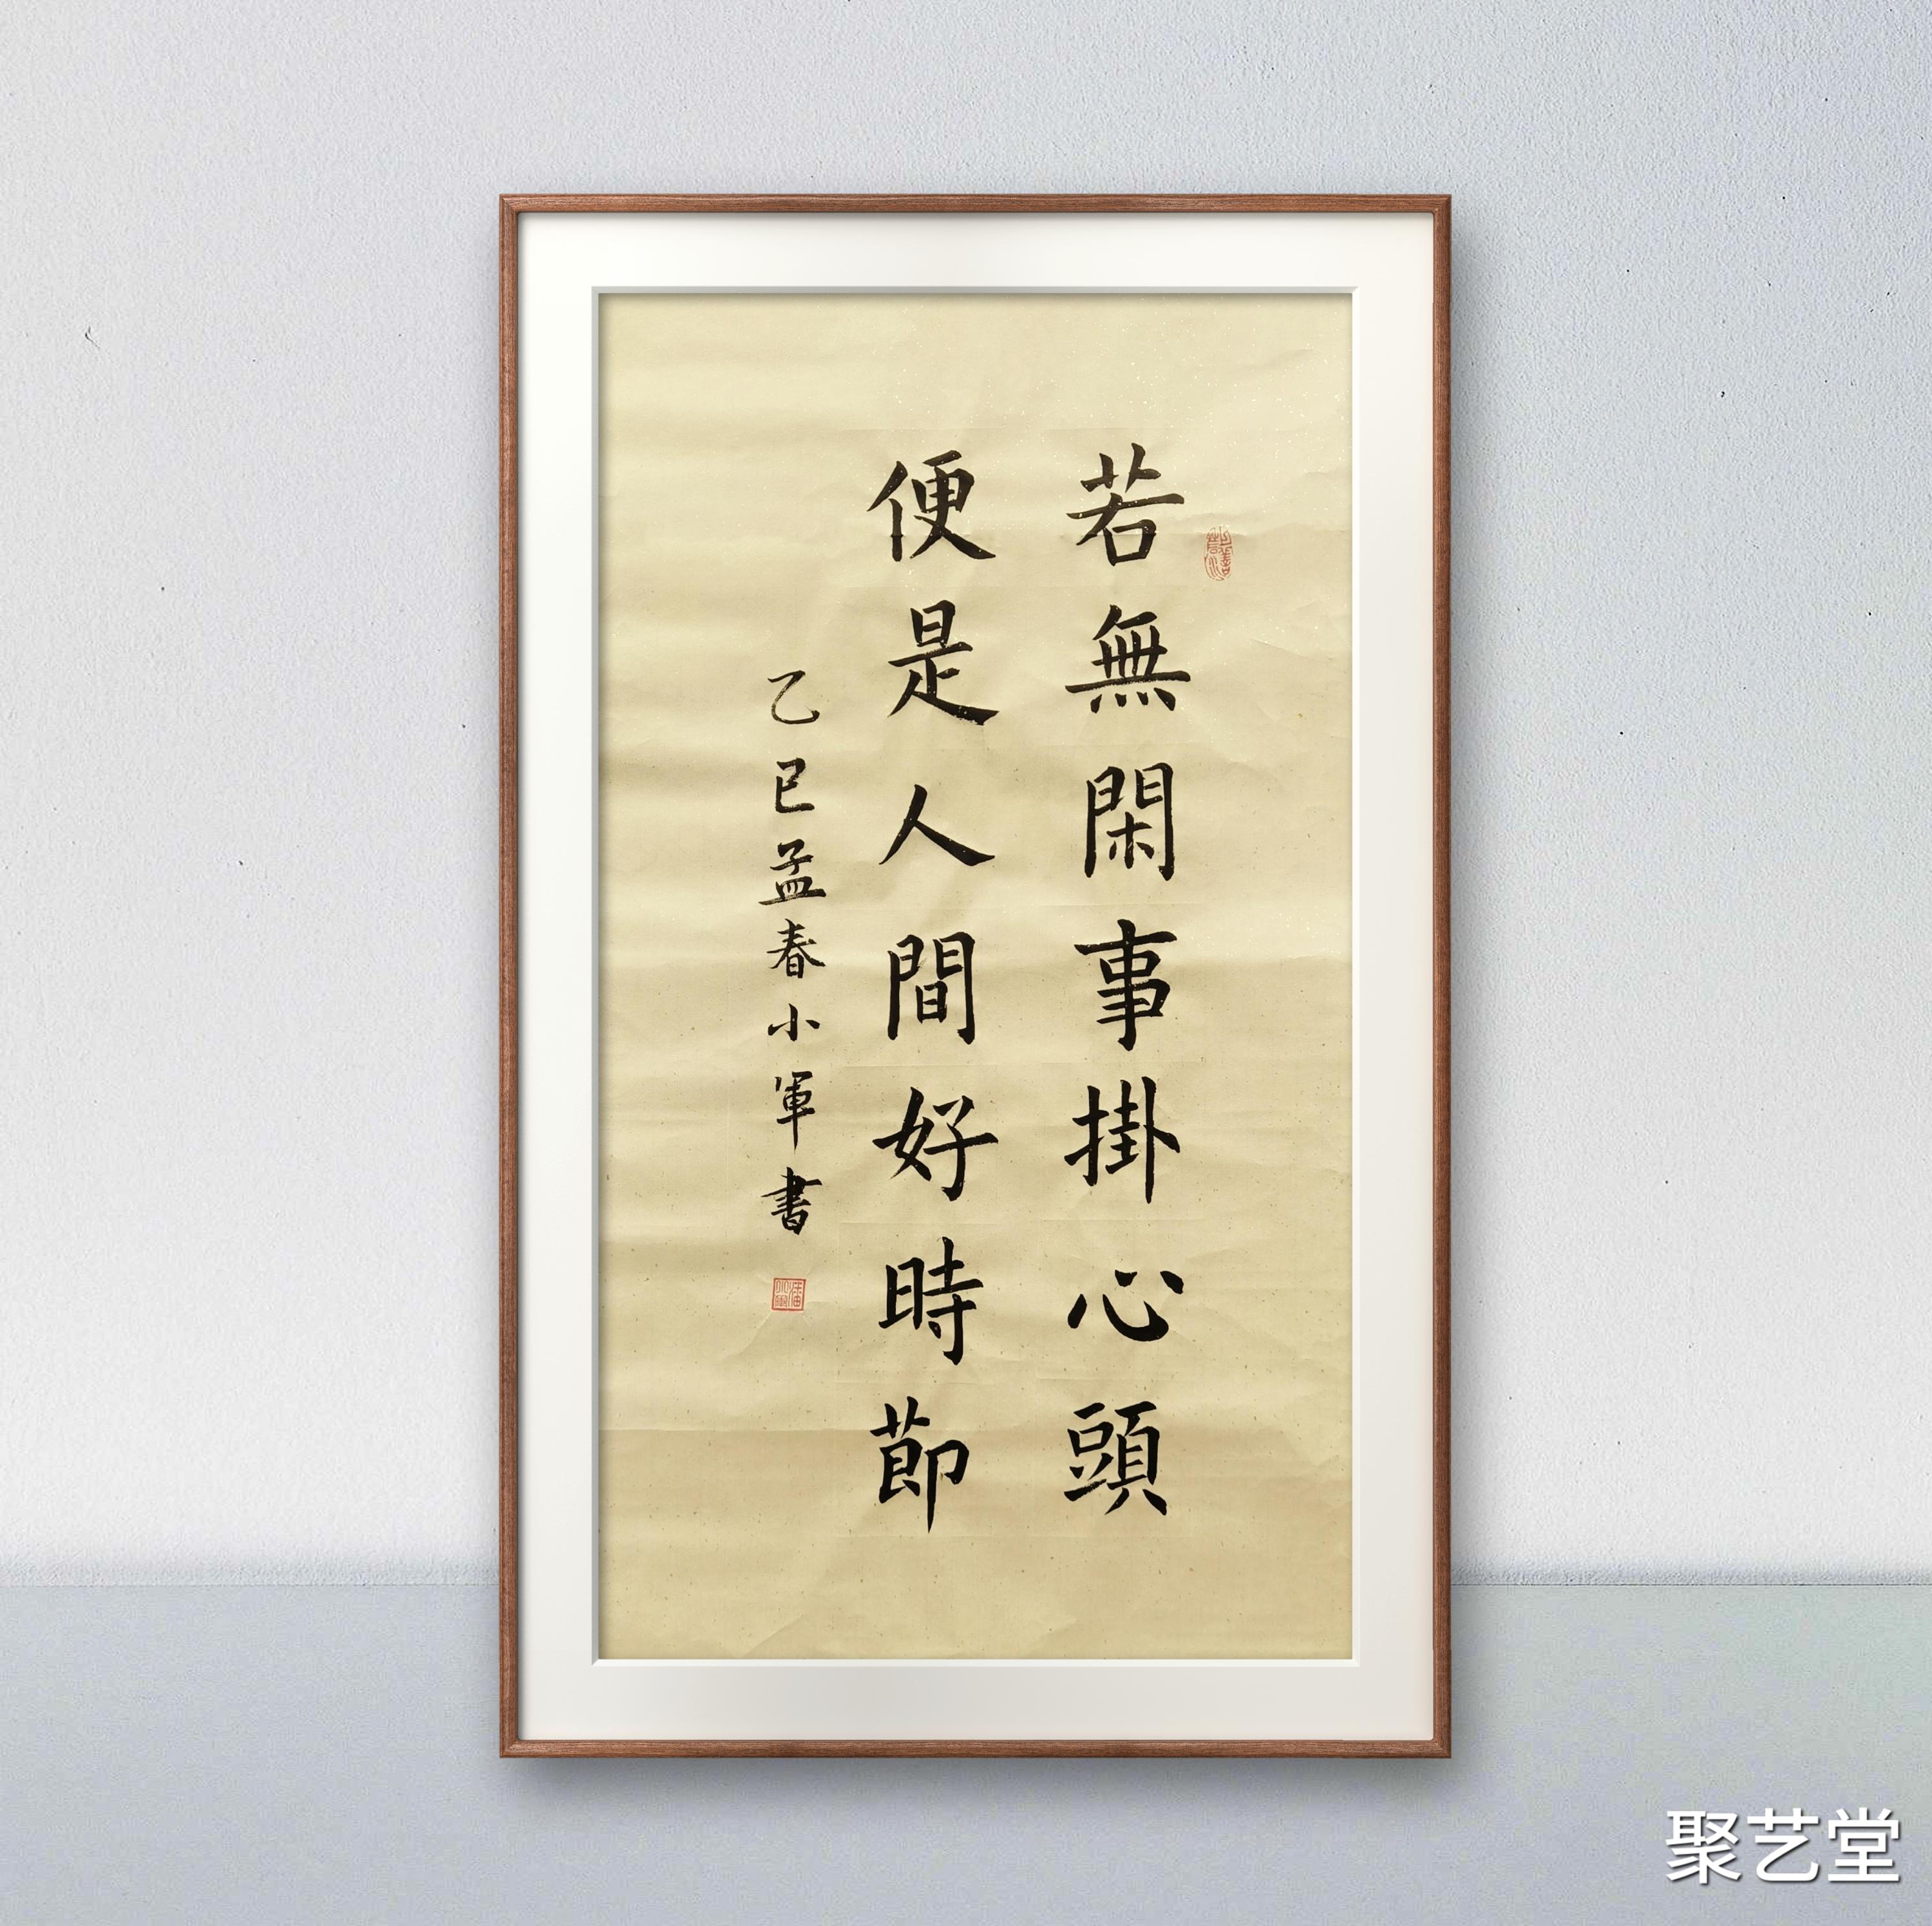 若無閑事掛心頭
便是人間好時節
乙巳孟春小軍書
聚艺堂